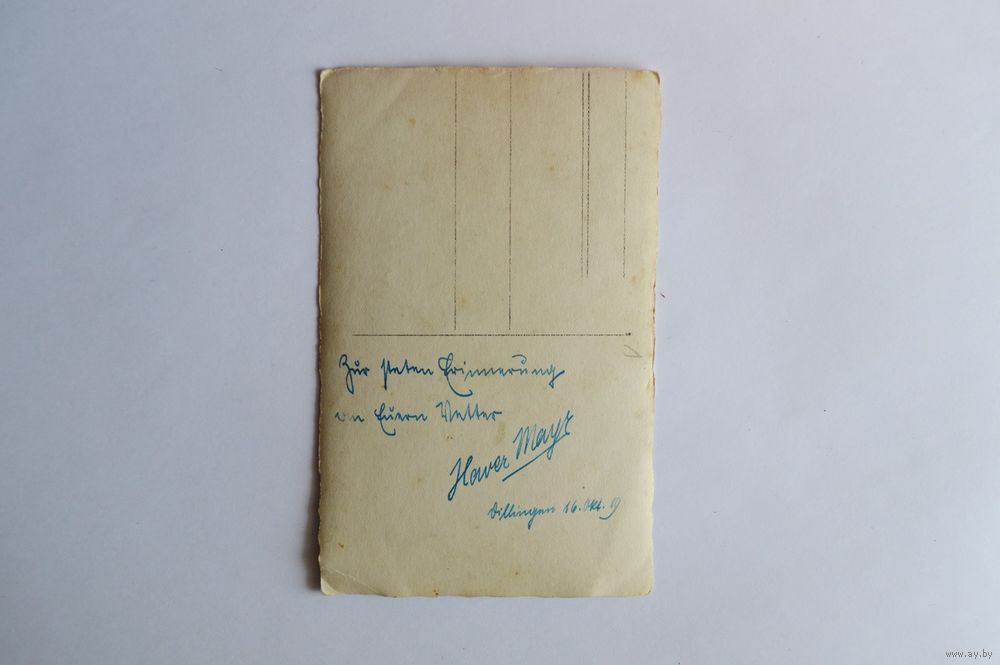 Zur steten Erinnerung
an Euern Vetter
Xaver Mayr
Dillingen 16. Okt. 19
www.ay.by